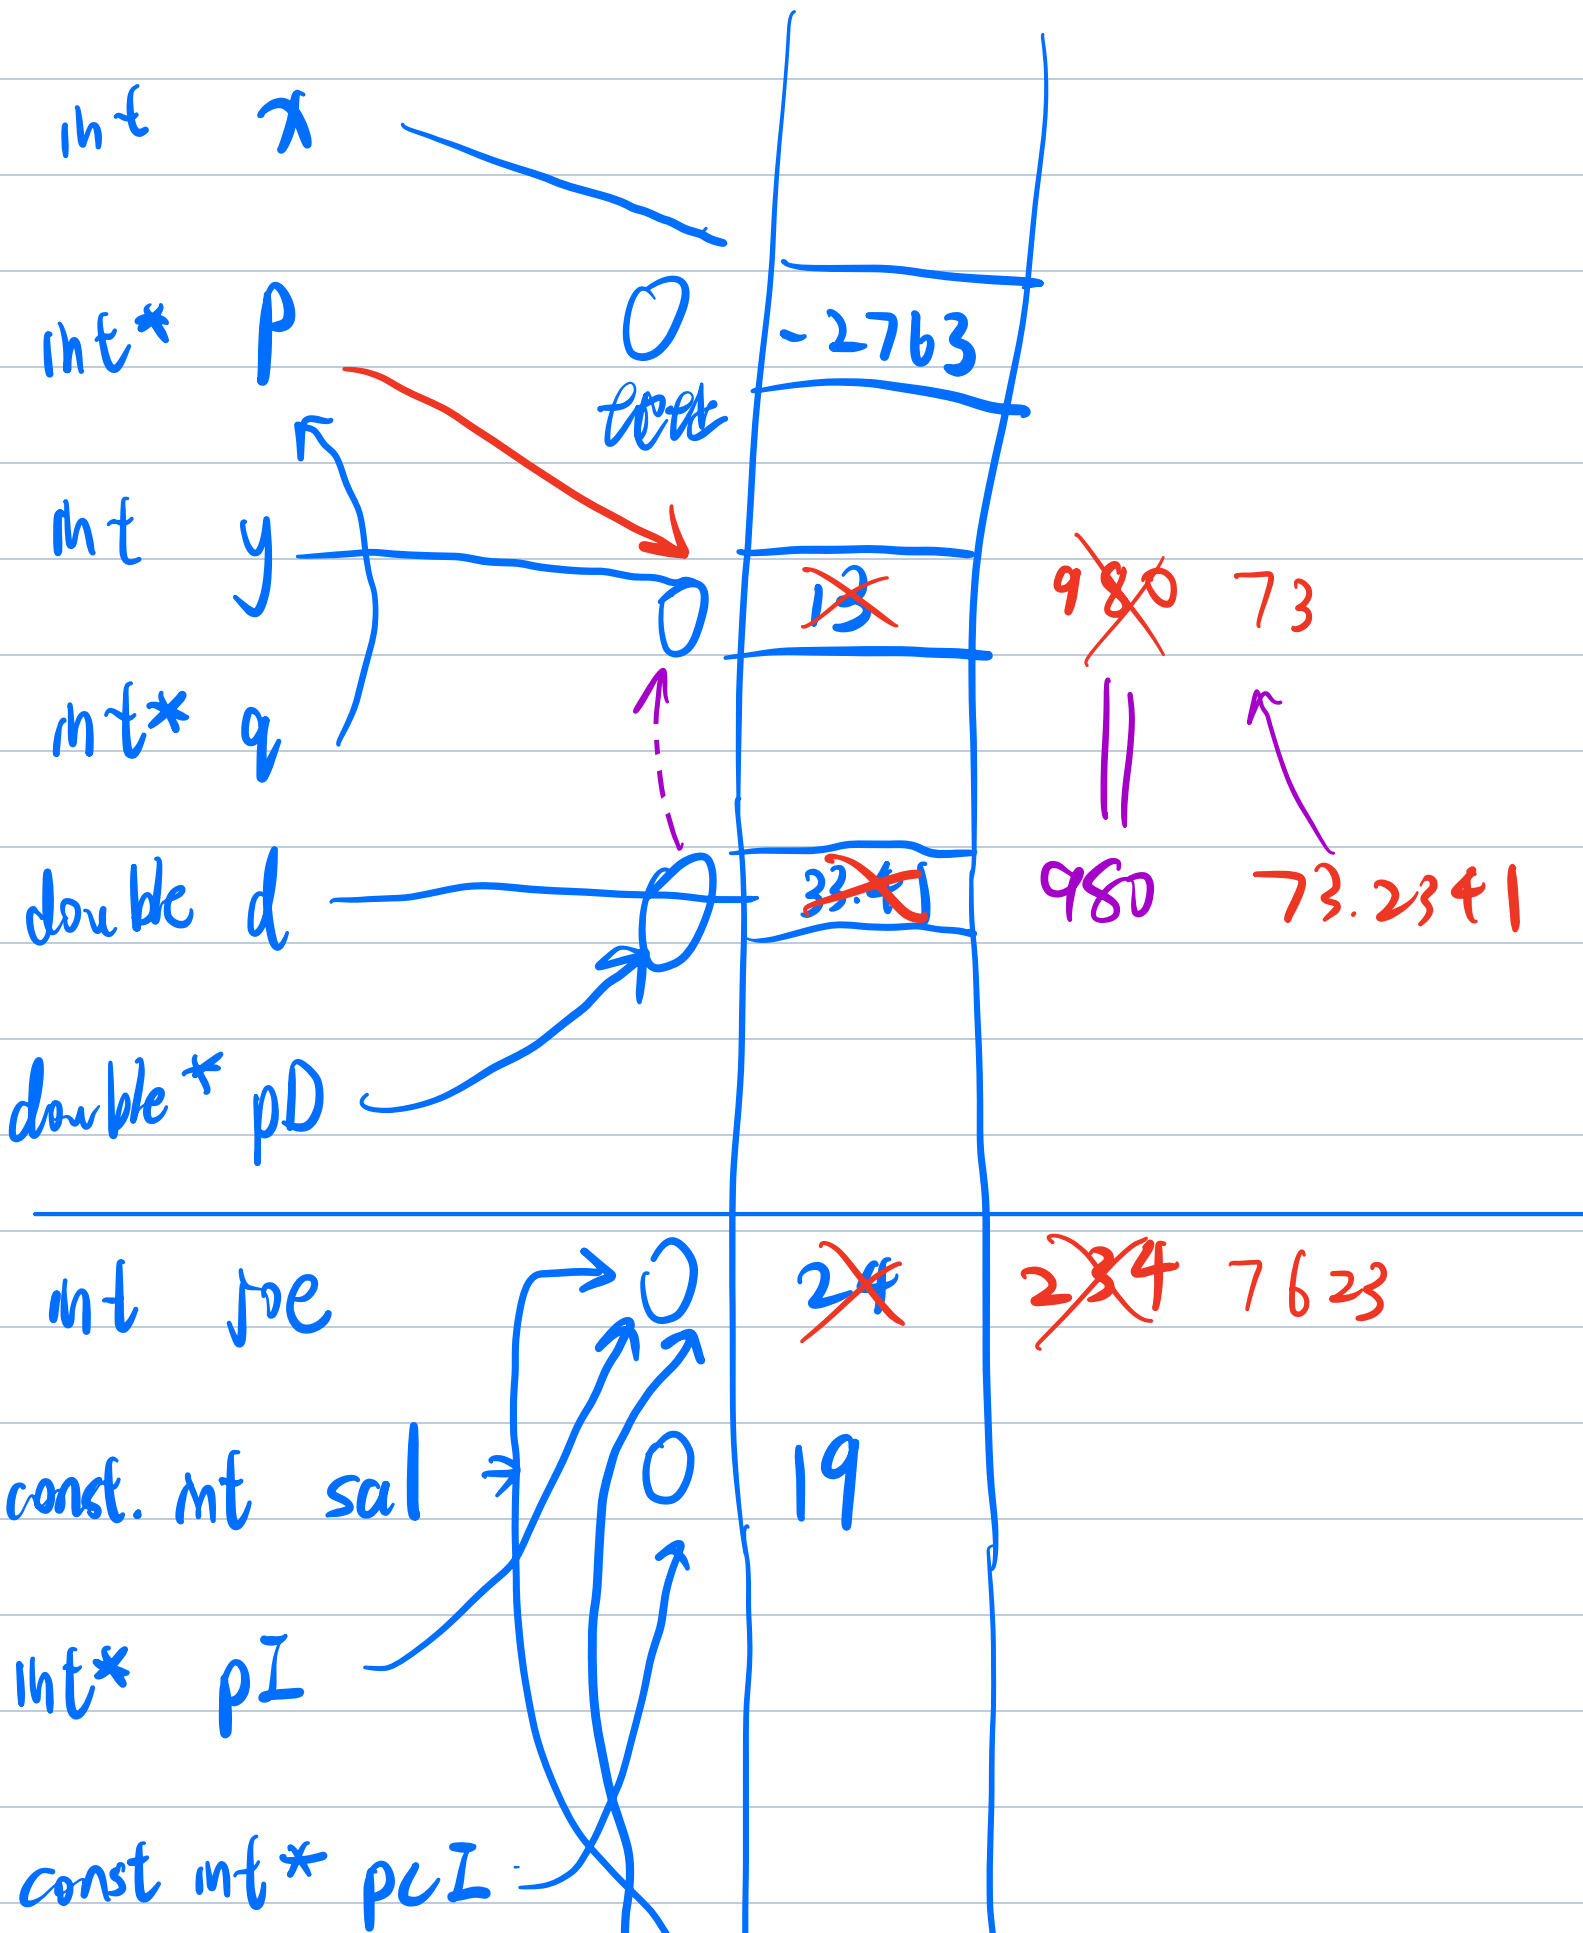 int x
int* p 0 -2763
int y 0 13 980 73
int* q
double d 0 33. 980 73.2341
double* pD
int joe 0 24 234 7623
const int sal 0 19
int* pI
const int* pcI